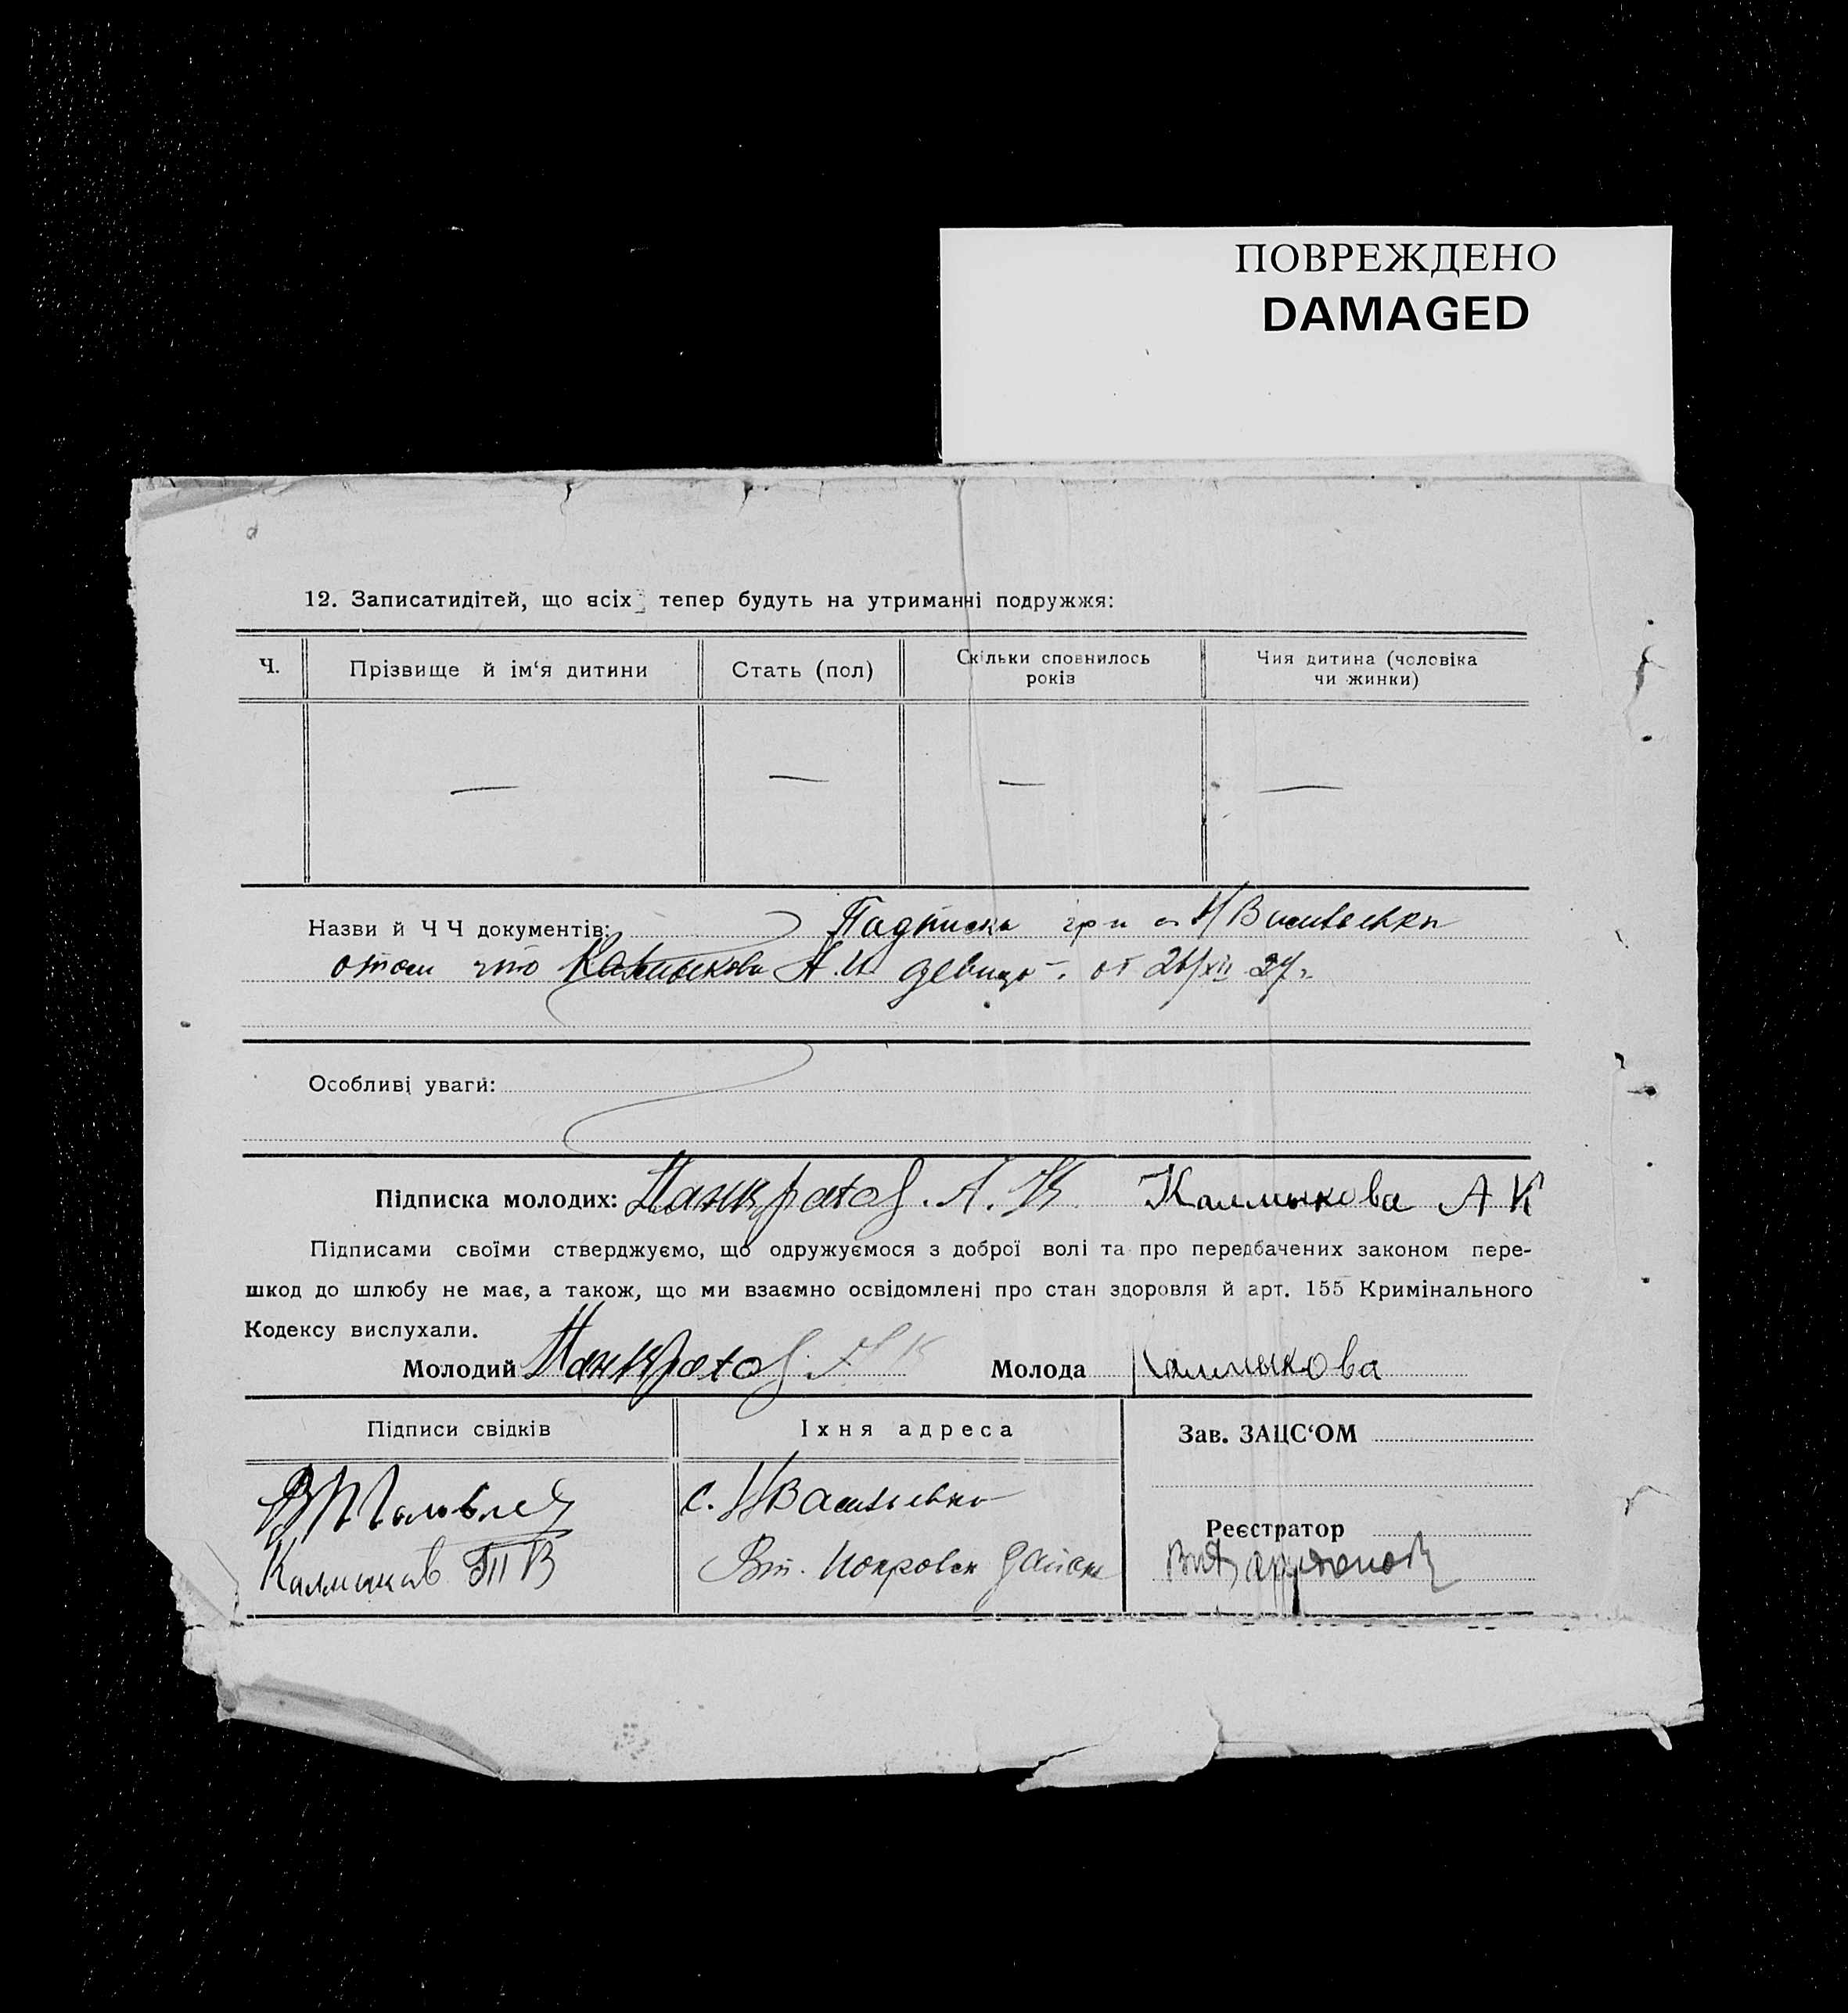 ПОВРЕЖДЕНО
DAMAGED
12. Записатидітей, що всіх тепер будуть на утриманні подружжя:
Ч.
Прізвище й ім‘я дитини
Стать (пол)
Скільки сповнилось років
Чия дитина (чоловіка чи жинки)
— — — —
Назви й Ч Ч документів: Падписка гр-н с Н Васильевки
отом что Калмыкова А. И. девица. от 26/XII 27 г.
Особливі уваги:
Підписка молодих: Панкратов. А. К. Калмыкова А К
Підписами своїми стверджуємо, що одружуємося з доброї волі та про передбачених законом пере-
шкод до шлюбу не має, а також, що ми взаємно освідомлені про стан здоровля й арт. 155 Кримінального
Кодексу вислухали.
Молодий Панкратов. А К Молода Калмыкова
Підписи свідків
Їхня адреса
Зав. ЗАЦС‘ОМ
с. Н Васильевка
Реєстратор
Калмыков П В
Вт. Покровск